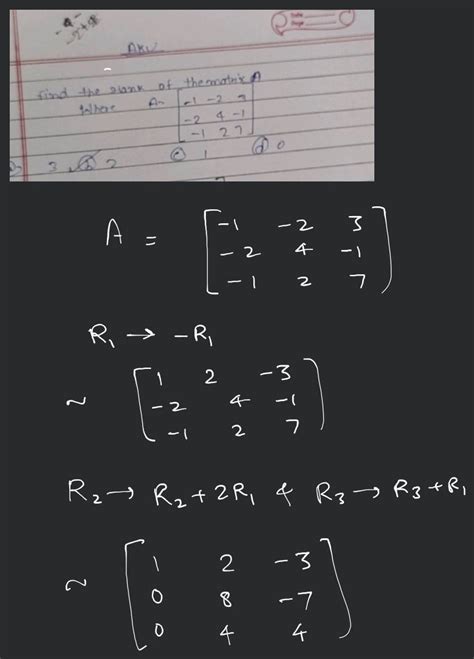 Find the Rank of the matrix A
Where A= -1 -2 3
-2 4 -1
-1 2 7
3 (b) 2 (c) 1 (d) 0
A = [ -1 -2 3
-2 4 -1
-1 2 7 ]
R1 → -R1
~ [ 1 2 -3
-2 4 -1
-1 2 7 ]
R2 → R2 + 2R1 & R3 → R3 + R1
~ [ 1 2 -3
0 8 -7
0 4 4 ]